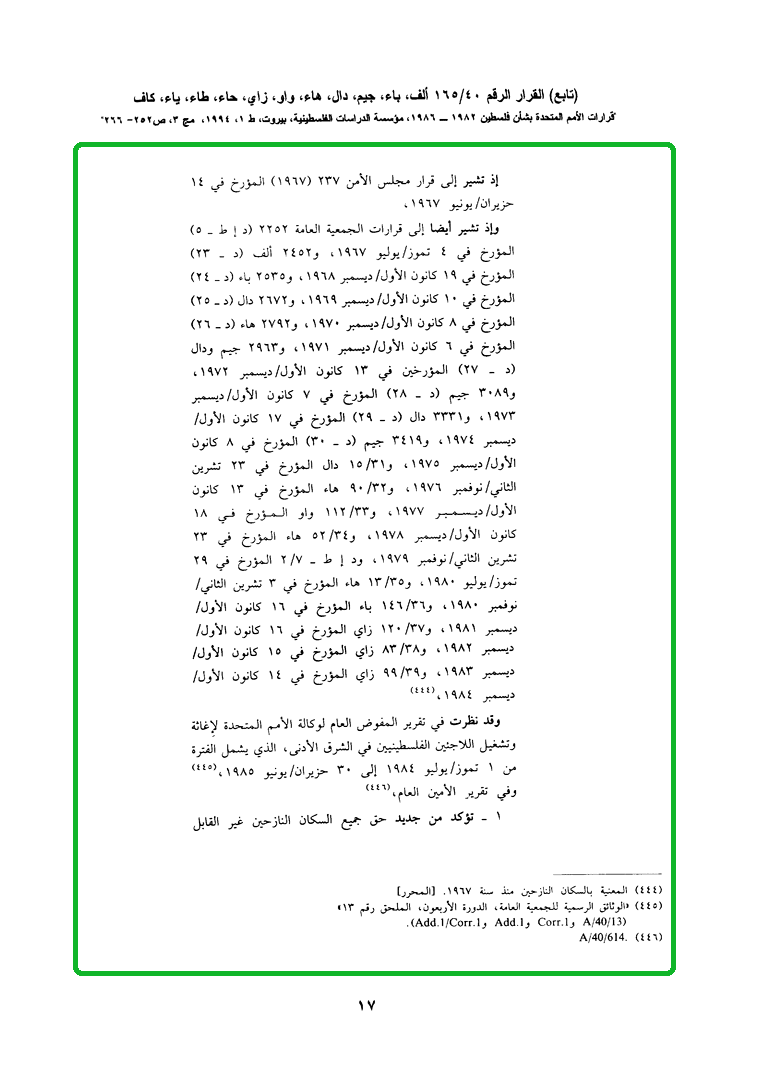 (تابع) القرار الرقم ١٦٥/٤٠ ألف، باء، جيم، دال، هاء، واو، زاي، حاء، طاء، ياء، كاف
قرارات الأمم المتحدة بشأن فلسطين ١٩٨٢ ــ ١٩٨٦، مؤسسة الدراسات الفلسطينية، بيروت، ط ١، ١٩٩٤، مج ٣، ص٢٥٢- ٢٦٦"
إذ تشير إلى قرار مجلس الأمن ٢٣٧ (١٩٦٧) المؤرخ في ١٤
حزيران/يونيو ١٩٦٧،
وإذ تشير أيضا إلى قرارات الجمعية العامة ٢٢٥٢ (د إ ط ـ ٥)
المؤرخ في ٤ تموز/يوليو ١٩٦٧، و٢٤٥٢ ألف (د ـ ٢٣)
المؤرخ في ١٩ كانون الأول/ديسمبر ١٩٦٨، و٢٥٣٥ باء (د ـ ٢٤)
المؤرخ في ١٠ كانون الأول/ديسمبر ١٩٦٩، و٢٦٧٢ دال (د ـ ٢٥)
المؤرخ في ٨ كانون الأول/ديسمبر ١٩٧٠، و٢٧٩٢ هاء (د ـ ٢٦)
المؤرخ في ٦ كانون الأول/ديسمبر ١٩٧١، و٢٩٦٣ جيم ودال
(د ـ ٢٧) المؤرخين في ١٣ كانون الأول/ديسمبر ١٩٧٢،
و٣٠٨٩ جيم (د ـ ٢٨) المؤرخ في ٧ كانون الأول/ديسمبر
١٩٧٣، و٣٣٣١ دال (د ـ ٢٩) المؤرخ في ١٧ كانون الأول/
ديسمبر ١٩٧٤، و٣٤١٩ جيم (د ـ ٣٠) المؤرخ في ٨ كانون
الأول/ديسمبر ١٩٧٥، و١٥/٣١ دال المؤرخ في ٢٣ تشرين
الثاني/نوفمبر ١٩٧٦، و٩٠/٣٢ هاء المؤرخ في ١٣ كانون
الأول/ديسمبر ١٩٧٧، و١١٢/٣٣ واو المؤرخ في ١٨
كانون الأول/ديسمبر ١٩٧٨، و٥٢/٣٤ هاء المؤرخ في ٢٣
تشرين الثاني/نوفمبر ١٩٧٩، ود إ ط ـ ٢/٧ المؤرخ في ٢٩
تموز/يوليو ١٩٨٠، و١٣/٣٥ هاء المؤرخ في ٣ تشرين الثاني/
نوفمبر ١٩٨٠، و١٤٦/٣٦ باء المؤرخ في ١٦ كانون الأول/
ديسمبر ١٩٨١، و١٢٠/٣٧ زاي المؤرخ في ١٦ كانون الأول/
ديسمبر ١٩٨٢، و٨٣/٣٨ زاي المؤرخ في ١٥ كانون الأول/
ديسمبر ١٩٨٣، و٩٩/٣٩ زاي المؤرخ في ١٤ كانون الأول/
ديسمبر ١٩٨٤،(٤٤٤)
وقد نظرت في تقرير المفوض العام لوكالة الأمم المتحدة لإغاثة
وتشغيل اللاجئين الفلسطينيين في الشرق الأدنى، الذي يشمل الفترة
من ١ تموز/يوليو ١٩٨٤ إلى ٣٠ حزيران/يونيو ١٩٨٥،(٤٤٥)
وفي تقرير الأمين العام،(٤٤٦)
١ ـ تؤكد من جديد حق جميع السكان النازحين غير القابل
(٤٤٤) المعنية بالسكان النازحين منذ سنة ١٩٦٧. [المحرر]
(٤٤٥) «الوثائق الرسمية للجمعية العامة، الدورة الأربعون، الملحق رقم ١٣»
(A/40/13 وCorr.1 وAdd.1 وAdd.1/Corr.1).
(٤٤٦) A/40/614.
١٧